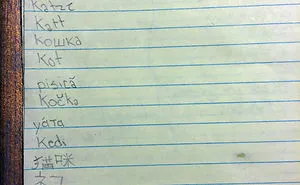 Katze
Katt
кошка
Kot
pisică
Kočka
γάτα
Kedi
猫咪
ネコ